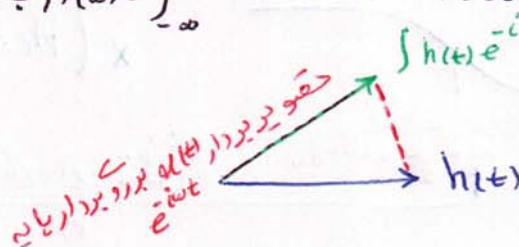 ∫ h(t) e^{-i
h(t)
تصویر بردار h(t) بر روی بردار پایه
e^{iωt}
-∞